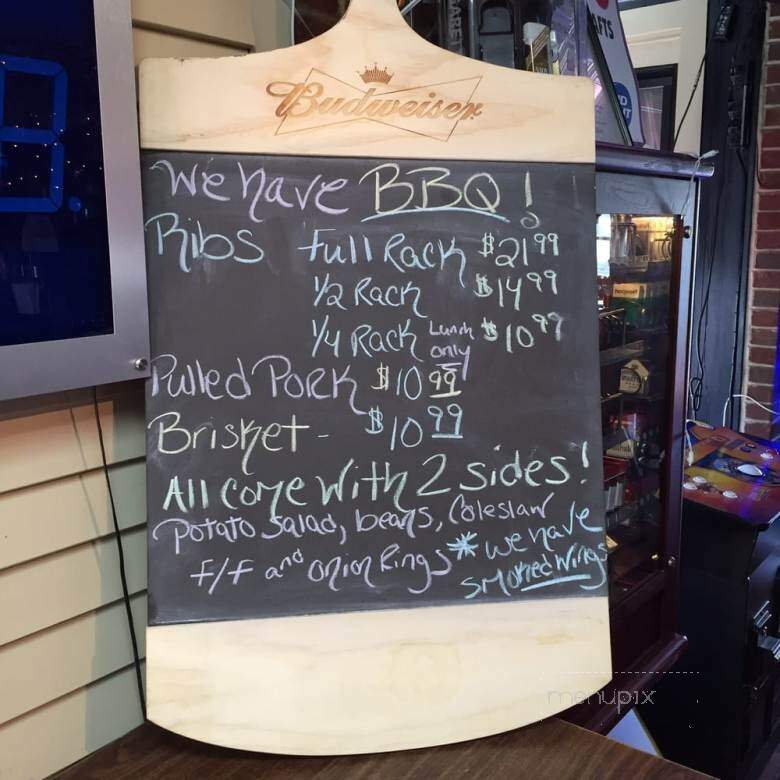 Budweiser
We have BBQ!
Ribs Full Rack $21.99
1/2 Rack $14.99
1/4 Rack Lunch only $10.99
Pulled Pork $10.99
Brisket - $10.99
All come with 2 sides!
Potato Salad, beans, Coleslaw
f/f and onion Rings
* we have
smoked wings
menupix